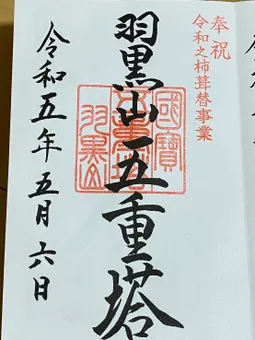 奉祝
令和之杮葺替事業
羽黒山五重塔
國寶
羽黒山
令和五年五月六日